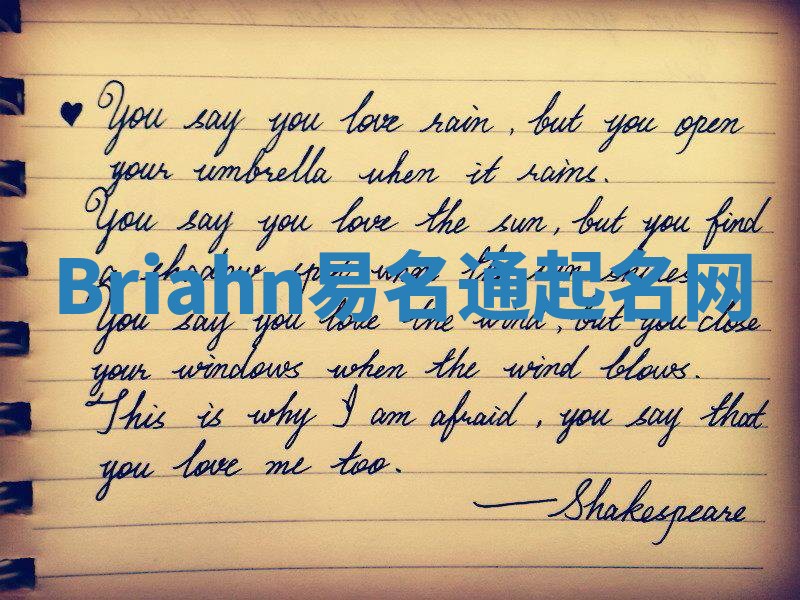 ♥ You say you love rain, but you open
your umbrella when it rains.
You say you love the sun, but you find
a shadow spot when the sun shines.
Briahn易名通起名网
You say you love the wind, but you close
your windows when the wind blows.
This is why I am afraid, you say that
you love me too.
— Shakespeare